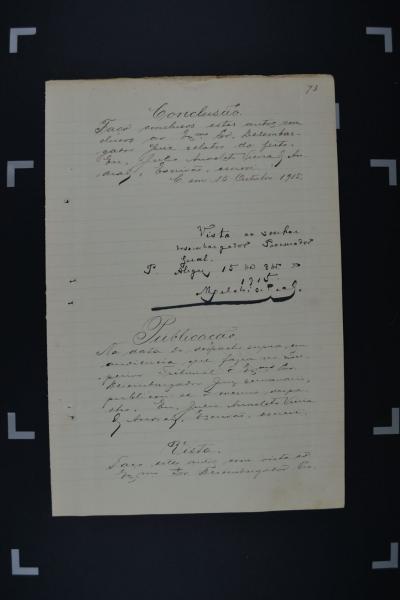 73
Conclusão.
Faço conclusos estes autos
ao Exmo Sr. Desembar-
gador Juiz relator do feito.
Eu, Julio Anacleto Vieira
Escrivão, escrevi.
E em 15 Outubro 1915.
Vista ao senhor
desembargador Procurador
Geral.
P. Alegre 15 10
1915.
Publicação
Na data do despacho supra, em
audiencia que fazia no Su-
perior Tribunal o Exmo Sr.
Desembargador Juiz semanario,
publicou-se o mesmo despa-
cho. Eu, Julio Anacleto Vieira
Escrivão, escrevi.
Vista.
Faço estes autos com vista ao
Exmo Sr. Desembargador Pro.